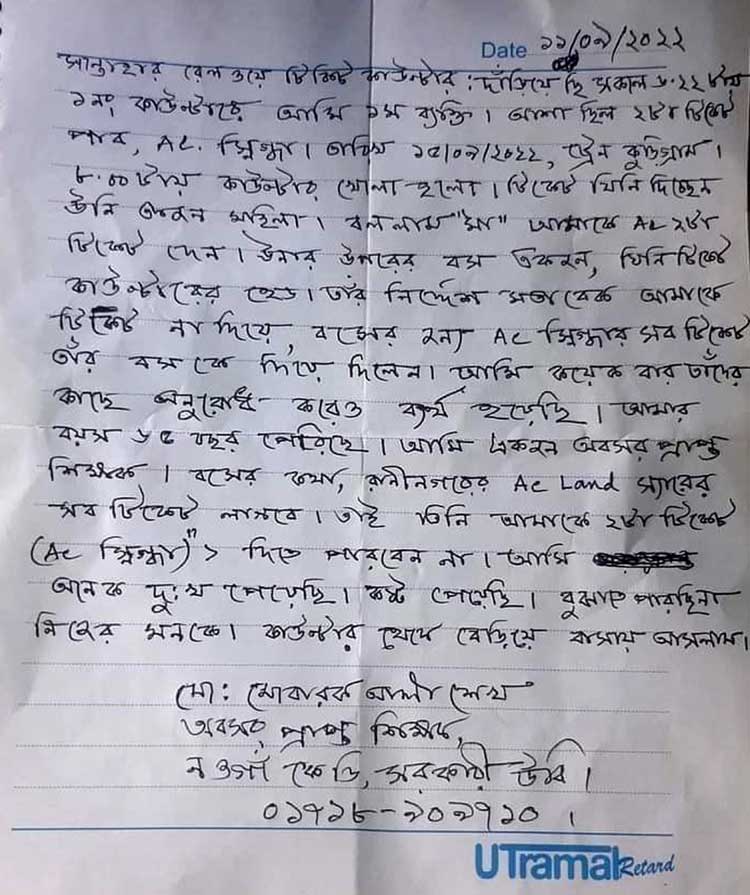 Date ১১/০৯/২০২২
সান্তাহার রেলওয়ে টিকিট কাউন্টার: দাঁড়িয়েছি সকাল ৬.২২ টায়
১নং কাউন্টারে আমি ১ম ব্যক্তি। আশা ছিল ২টা টিকেট
পাব, AC. স্নিগ্ধা। তারিখ ১৫/০৯/২০২২, ট্রেন কুড়িগ্রাম।
৮.০০টায় কাউন্টার খোলা হলো। টিকেট যিনি দিচ্ছেন
উনি একজন মহিলা। বললাম "মা" আমাকে AC ২টা
টিকেট দেন। উনার উপরের বস একজন, যিনি টিকেট
কাউন্টারের হেড। তাঁর নির্দেশ মতাবেক আমাকে
টিকেট না দিয়ে, বসের জন্য AC স্নিগ্ধার সব টিকেট
তাঁর বসকে দিয়ে দিলেন। আমি কয়েক বার তাঁদের
কাছে অনুরোধ করেও ব্যর্থ হয়েছি। আমার
বয়স ৬৫ বছর পেরিছে। আমি একজন অবসর প্রাপ্ত
শিক্ষক। বসের কথা, রানীনগরের AC Land স্যারের
সব টিকেট লাগবে। তাই তিনি আমাকে ২টা টিকেট
(AC স্নিগ্ধা)" > দিতে পারবেন না। আমি
অনেক দু:খ পেয়েছি। কষ্ট পেয়েছি। বুঝাতে পারছিনা
নিজের মনকে। কাউন্টার থেকে বেড়িয়ে বাসায় আসলাম।
মো: মোবারক আলী শেখ
অবসর প্রাপ্ত শিক্ষক,
নওগাঁ কে ডি, সরকারী উবি।
০১৭১৮-৯০৯৭১০।
UTramal Retard